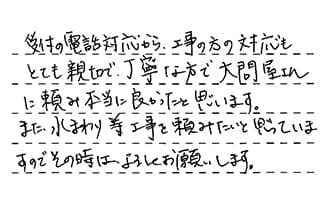 受付の電話対応から、工事の方の対応も
とても親切で、丁寧な方で大問屋さん
に頼み本当に良かったと思います。
また、水まわり等工事を頼みたいと思っていま
すのでその時は、よろしくお願いします。